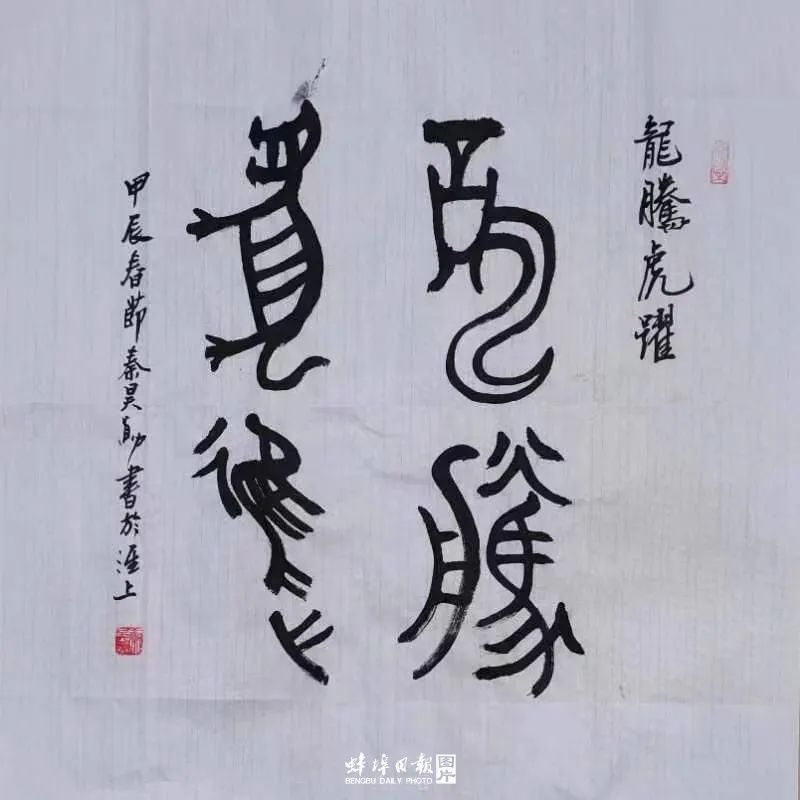 龍騰虎躍
龍騰
虎躍
甲辰春節秦昊勛書於淮上
蚌埠日報 图片
BENGBU DAILY PHOTO